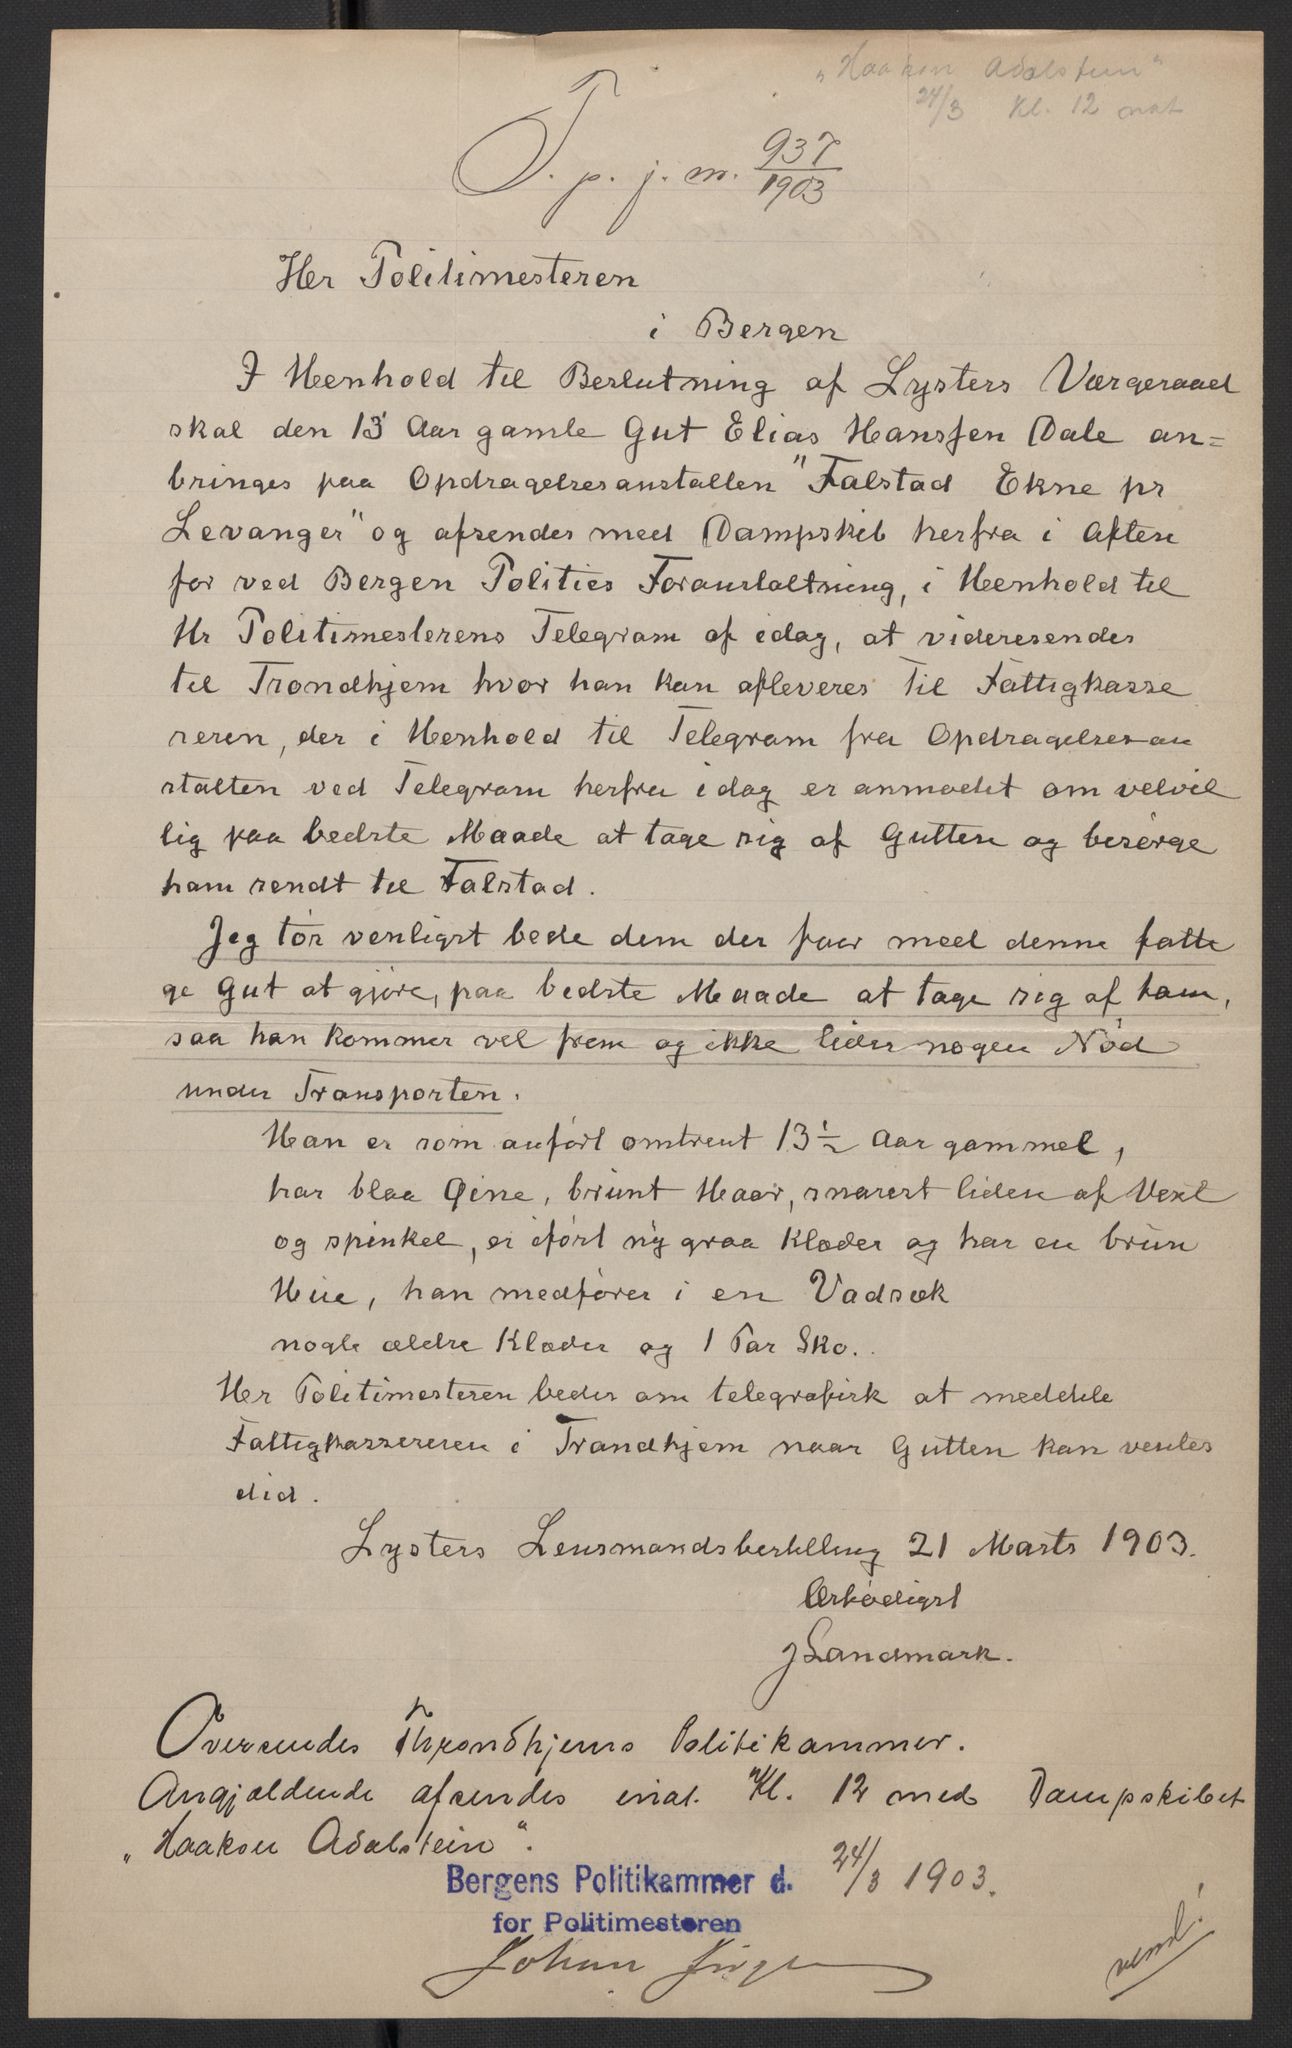 "Haakon Adalstein"
24/3 Kl. 12 nat
T. p. j. n. 937/1903
Her Politimesteren
i Bergen
I Henhold til Beslutning af Lysters Værgeraad
skal den 13 Aar gamle Gut Elias Hanssen Dale an=
bringes paa Opdragelsesanstalten "Falstad Ekne pr
Levanger" og afsendes med Dampskib herfra i Aften
for ved Bergen Polities Foranstaltning, i Henhold til
Hr Politimesterens Telegram af idag, at videresendes
til Trondhjem hvor han kan afleveres til Fattigkasse
reren, der i Henhold til Telegram fra Opdragelsesan
stalten ved Telegram herfra idag er anmodet om velvil
lig paa bedste Maade at tage sig af Gutten og besørge
ham sendt til Falstad.
Jeg tør venligst bede dem der faar med denne fatti
ge Gut at gjøre, paa bedste Maade at tage sig af ham,
saa han kommer vel frem og ikke lider nogen Nød
under Transporten.
Han er som anført omtrent 13½ Aar gammel,
har blaa Øine, brunt Haar, snarest liden af Vext
og spinkel, er iført ny graa Klæder og har en brun
Hue, han medfører i en Vadsæk
nogle ældre Klæder og 1 Par Sko.
Her Politimesteren bedes om telegrafisk at meddele
Fattigkassereren i Trondhjem naar Gutten kan ventes
did.
Lysters Lensmandsbestilling 21 Marts 1903.
Ærbødigst
J Landmark.
Oversendes Throndhjems Politikammer.
Angjældende afsendes inat Kl. 12 med Dampskibet
"Haakon Adalstein".
Bergens Politikammer d. 24/3 1903.
for Politimesteren
Johan
vend!